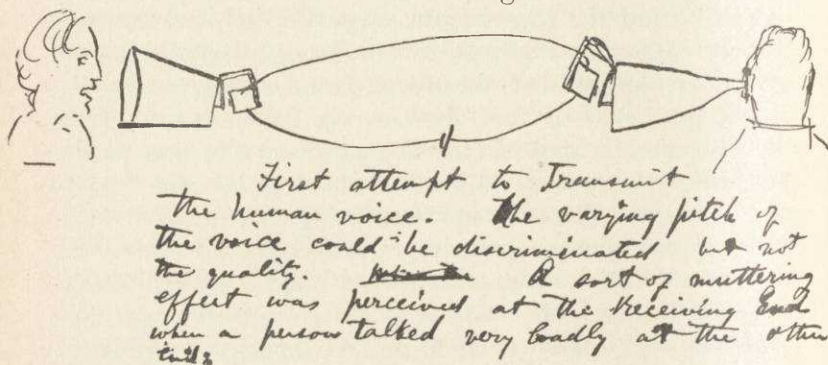 First attempt to Transmit
the human voice. The varying pitch of
the voice could be discriminated but not
the quality. A sort of muttering
effect was perceived at the receiving End
when a person talked very loudly at the other
End